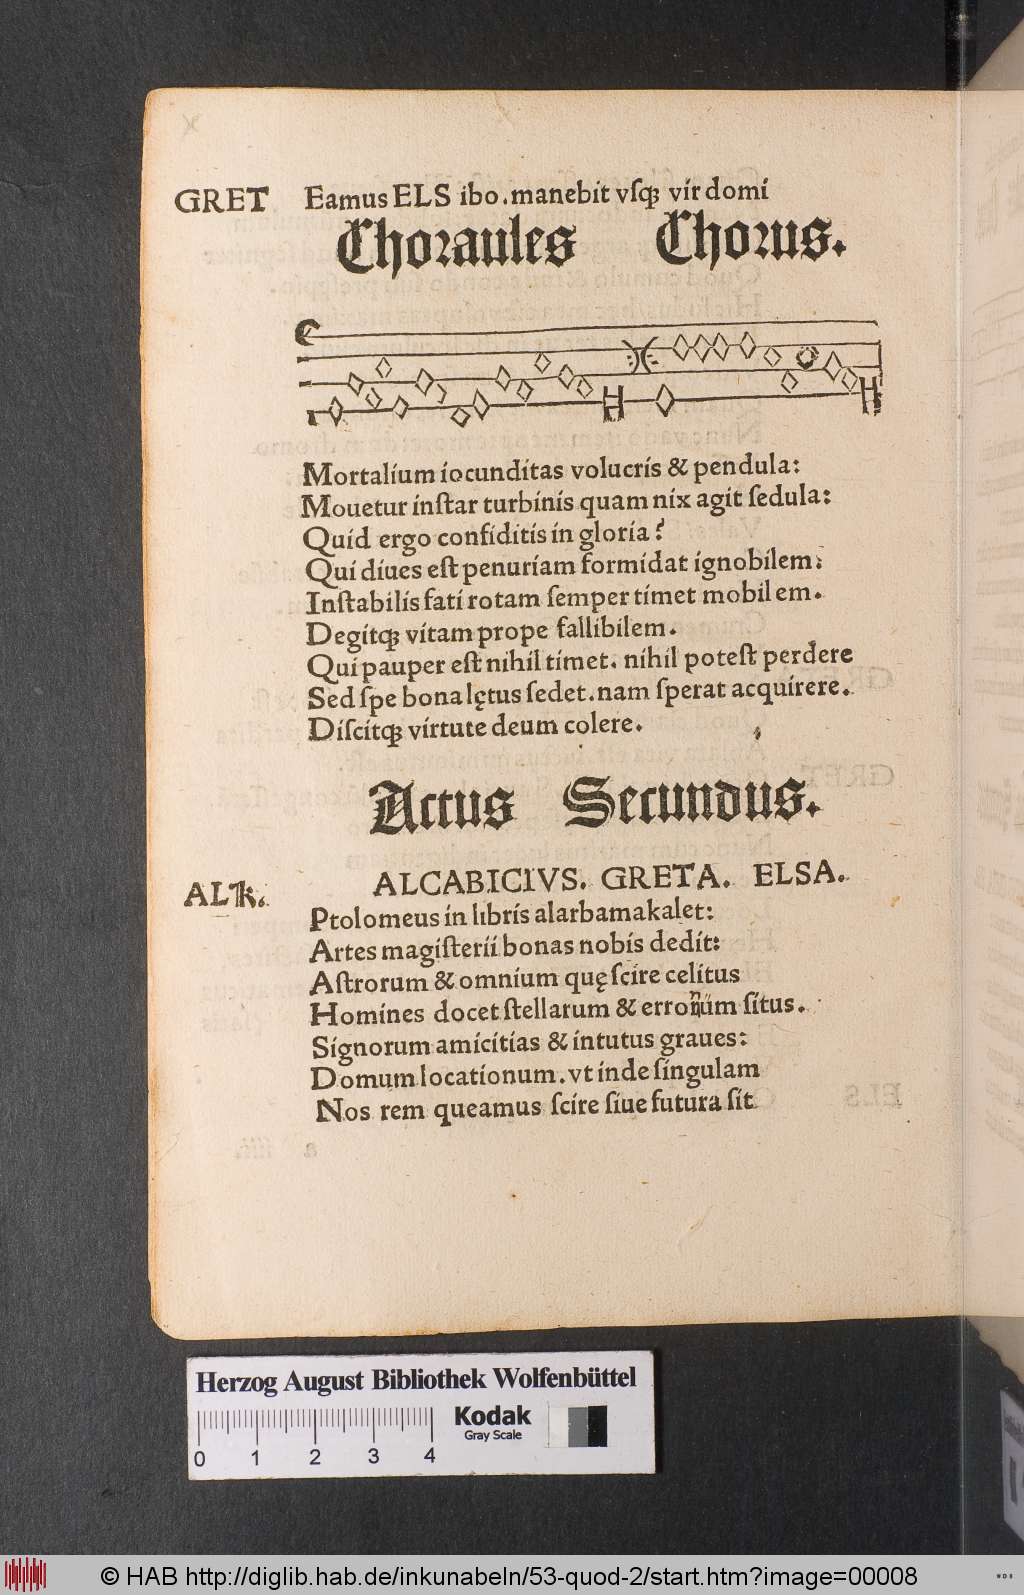 GRET Eamus ELS ibo. manebit vſqꝫ vir domi
Choraules Chorus.
Mortalium iocunditas volucris & pendula:
Mouetur inſtar turbinis quam nix agit ſedula:
Quid ergo confiditis in gloria?
Qui diues eſt penuriam formidat ignobilem:
Inſtabilis fati rotam ſemper timet mobil em.
Degitqꝫ vitam prope fallibilem.
Qui pauper eſt nihil timet. nihil poteſt perdere
Sed ſpe bona lętus ſedet. nam ſperat acquirere.
Diſcitqꝫ virtute deum colere.
Actus Secundus.
ALCABICIVS. GRETA. ELSA.
ALK.
Ptolomeus in libris alarbamakalet:
Artes magiſterii bonas nobis dedit:
Aſtrorum & omnium quę ſcire celitus
Homines docet ſtellarum & erronüm ſitus.
Signorum amicitias & intutus graues:
Domum locationum. vt inde ſingulam
Nos rem queamus ſcire ſiue futura ſit
Herzog August Bibliothek Wolfenbüttel
Kodak
Gray Scale
0 1 2 3 4
© HAB http://diglib.hab.de/inkunabeln/53-quod-2/start.htm?image=00008